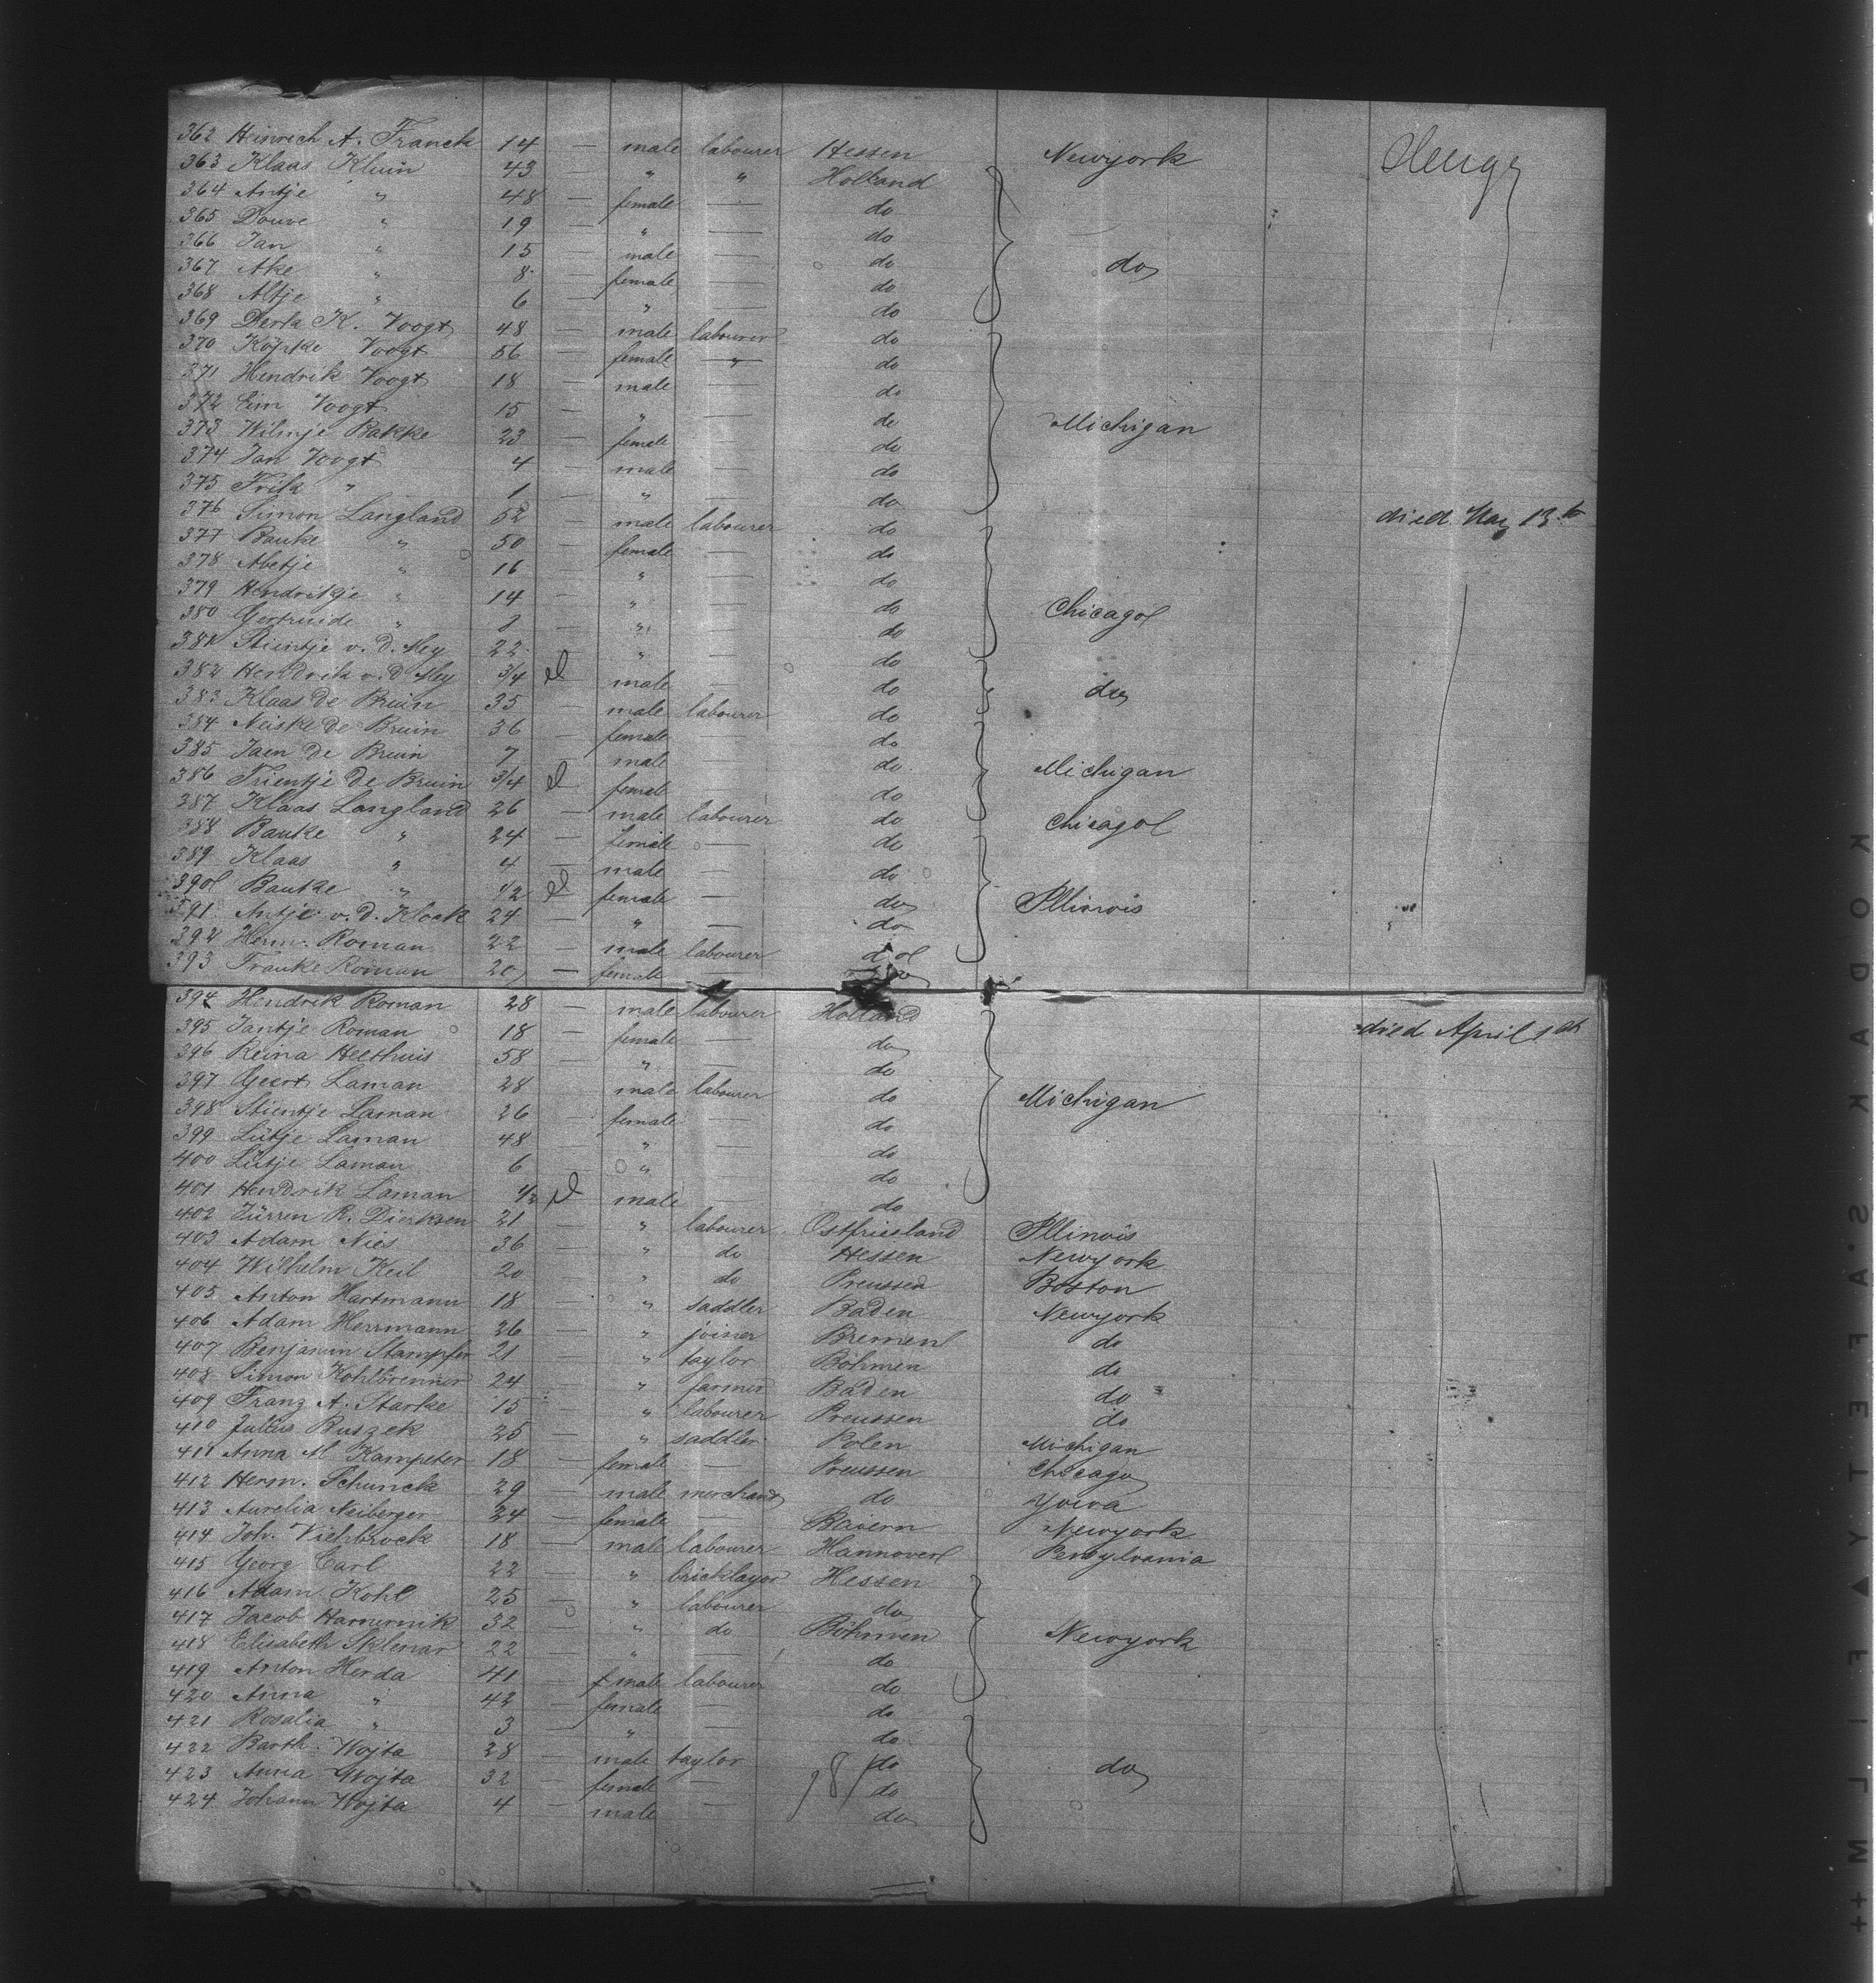 362 Heinrich A. Franck 14 — male labourer Hessen Newyork
363 Klaas Kluin 43 — " " Holland
364 Antje " 48 — female — do
365 Douve " 19 — " — do
366 Jan " 15 — male — do do
367 Ake " 8 — female — do
368 Altje " 6 — " — do
369 Derk K. Voogt 48 — male labourer do
370 Köpke Voogt 56 — female " do
371 Hendrik Voogt 18 — male — do
372 Eim Voogt 15 — " — do Michigan
373 Wilmje Bakke 23 — female — do
374 Jan Voogt 4 — male — do
375 Frik " 1 — " — do
376 Simon Langland 52 — male labourer do died May 13th
377 Bauke " 50 — female — do
378 Abetje " 16 — " — do
379 Hendrikje " 14 — " — do Chicago
380 Gertruide " 8 — " — do
381 Stientje v. d. Mey 22 — " — do
382 Hendrik v. d. Mey 3/4 male — do do
383 Klaas De Bruin 35 — male labourer do
384 Neiske De Bruin 36 — female — do
385 Jaen De Bruin 7 — male — do Michigan
386 Trientje De Bruin 3/4 female — do
387 Klaas Langland 26 — male labourer do Chicago
388 Bauke " 24 — female — do
389 Klaas " 4 — male — do
390 Bauke " 1/2 female — do Illinois
391 Antje v. d. Klock 24 — " — do
392 Herm. Roman 22 — male labourer do
393 Frauke Roman 20 — female — do
394 Hendrik Roman 28 — male labourer Holland
395 Jantje Roman 18 — female — do died April 1th
396 Reina Heethuis 58 — " — do
397 Geert Laman 28 — male labourer do Michigan
398 Stientje Laman 26 — female — do
399 Lütje Laman 48 — " — do
400 Lütje Laman 6 " — do
401 Hendrik Laman 1/2 male — do
402 Jürren R. Dierksen 21 — " labourer Ostfriesland Illinois
403 Adam Nies 36 — " do Hessen Newyork
404 Wilhelm Keil 20 — " do Preussen Boston
405 Anton Hartmann 18 — " saddler Baden Newyork
406 Adam Herrmann 26 — " joiner Bremen do
407 Benjamin Stampfer 21 — " taylor Böhmen do
408 Simon Kohlbrenner 24 — " farmer Baden do
409 Franz A. Starke 15 — " labourer Preussen do
410 Julius Buszek 25 — " saddler Polen Michigan
411 Anna M Kampeter 18 — female — Preussen Chicago
412 Herm. Schunck 29 — male merchand do Yowa
413 Aurelia Neiberger 24 — female — Baiern Newyork
414 Joh. Viehbrock 18 — male labourer Hannover Pensylvania
415 Georg Carl 22 — " bricklayer Hessen
416 Adam Kohl 25 — " labourer do
417 Jacob Hamernik 32 — " do Böhmen Newyork
418 Elisabeth Sklenar 22 — " — do
419 Anton Herda 41 — male labourer do
420 Anna " 42 — female — do
421 Rosalia " 3 — " — do
422 Barth. Wojta 28 — male taylor do
423 Anna Wojta 32 — female — do do
424 Johann Wojta 4 — male — do
KODAK·SAFETY FILM ++